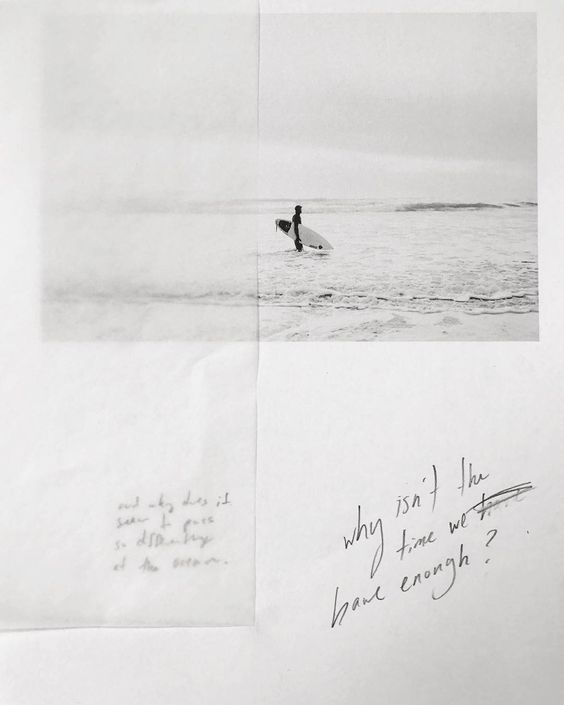 why isn't the
time we have
have enough?
and why does it
seem to pass
so differently
at the ocean.